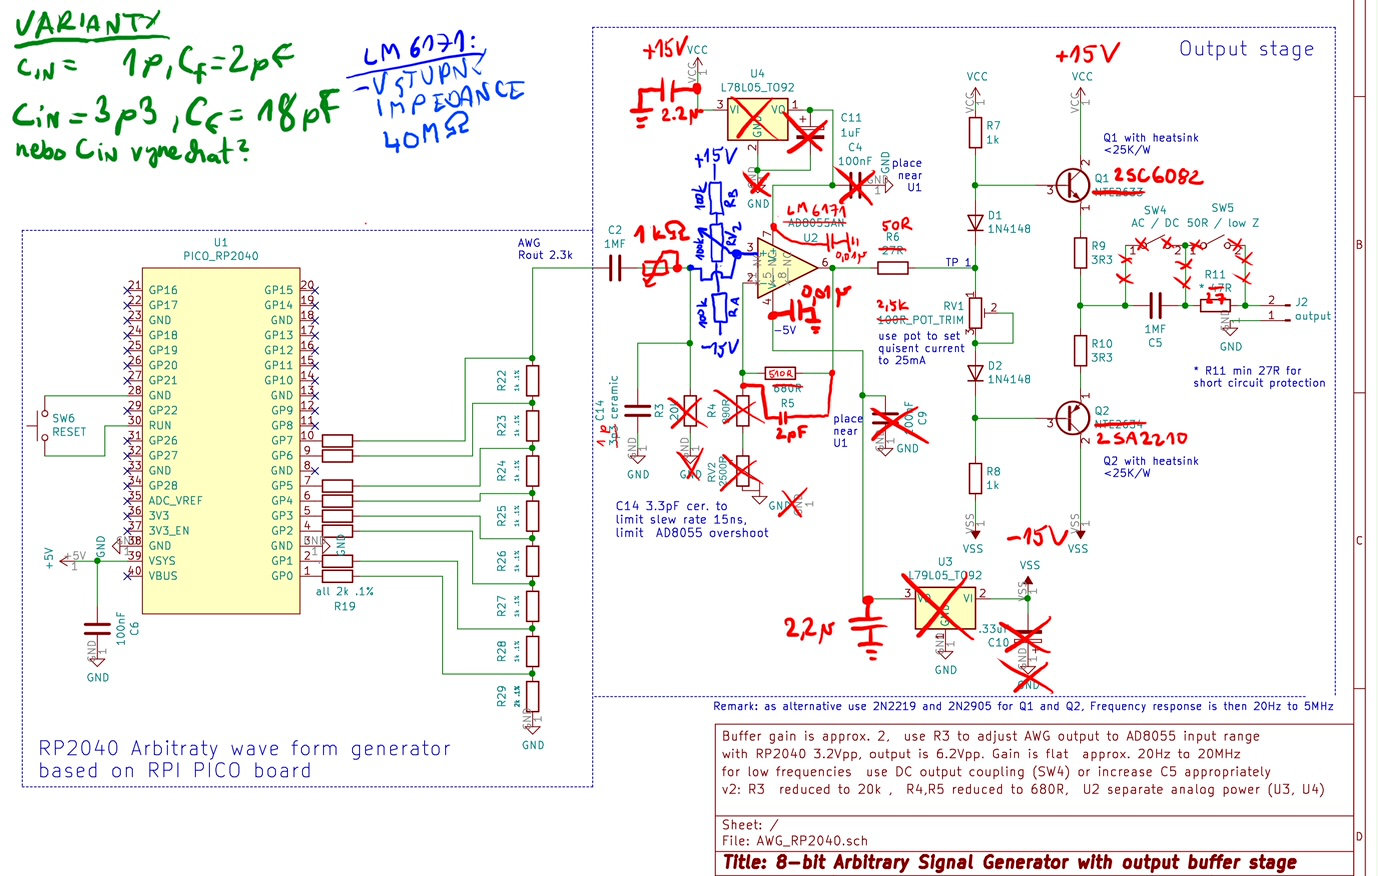 VARIANTY
CIN = 1p, Cf = 2pF
CIN = 3p3, Cf = 18pF
nebo CIN vynechat?
LM6171:
- VSTUPNÍ
IMPEDANCE
40MΩ
Output stage
+15V
VCC
2.2µ
U4
L78L05_TO92
VI
VO
GND
3
1
2
C11
1uF
C4
100nF
GND
place
near
U1
GND
+15V
100k
RB
100k
RV2
100k
RA
-15V
LM6171
AD8055AN
U2
0,01µ
0,01µ
-5V
3
2
6
7
4
C2
1MF
1kΩ
AWG
Rout 2.3k
50R
R6
27R
TP 1
VCC
R7
1k
D1
1N4148
RV1
2,5k
100R_POT_TRIM
use pot to set
quisent current
to 25mA
D2
1N4148
R8
1k
VSS
+15V
VCC
Q1 with heatsink
<25K/W
Q1
2SC6082
NTE2633
R9
3R3
R10
3R3
Q2
NTE2634
2SA2210
Q2 with heatsink
<25K/W
-15V
VSS
SW4
SW5
AC / DC
50R / low Z
R11
* 47R
27
1MF
C5
GND
J2
output
2
1
* R11 min 27R for
short circuit protection
C14
3p3 ceramic
1p
GND
R3
20k
GND
R4
RV2
2500R
GND
510R
680R
R5
2pF
place
near
U1
100nF
C9
GND
C14 3.3pF cer. to
limit slew rate 15ns,
limit AD8055 overshoot
2,2µ
U3
L79L05_TO92
VO
VI
GND
3
2
1
GND
VSS
.33uF
C10
GND
U1
PICO_RP2040
21 GP16 GP15 20
22 GP17 GP14 19
23 GND GND 18
24 GP18 GP13 17
25 GP19 GP12 16
26 GP20 GP11 15
27 GP21 GP10 14
28 GND GND 13
29 GP22 GP9 12
30 RUN GP8 11
31 GP26 GP7 10
32 GP27 GP6 9
33 GND GND 8
34 GP28 GP5 7
35 ADC_VREF GP4 6
36 3V3 GP3 5
37 3V3_EN GP2 4
38 GND GND 3
39 VSYS GP1 2
40 VBUS GP0 1
SW6
RESET
+5V
100nF
C6
GND
GND
all 2k .1%
R19
R22 1k .1%
R23 1k .1%
R24 1k .1%
R25 1k .1%
R26 1k .1%
R27 1k .1%
R28 1k .1%
R29 2k .1%
GND
RP2040 Arbitraty wave form generator
based on RPI PICO board
Remark: as alternative use 2N2219 and 2N2905 for Q1 and Q2, Frequency response is then 20Hz to 5MHz
Buffer gain is approx. 2, use R3 to adjust AWG output to AD8055 input range
with RP2040 3.2Vpp, output is 6.2Vpp. Gain is flat approx. 20Hz to 20MHz
for low frequencies use DC output coupling (SW4) or increase C5 appropriately
v2: R3 reduced to 20k , R4,R5 reduced to 680R, U2 separate analog power (U3, U4)
Sheet: /
File: AWG_RP2040.sch
Title: 8-bit Arbitrary Signal Generator with output buffer stage
B
C
D